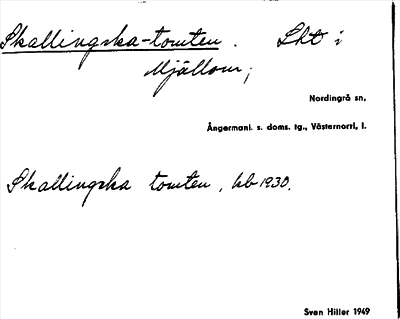 Skallingska-tomten. Lht i
Mjällom;
Nordingrå sn,
Ångermanl. s. doms. tg., Västernorrl, l.
Skallingska tomten, kb 1930.
Sven Hiller 1949